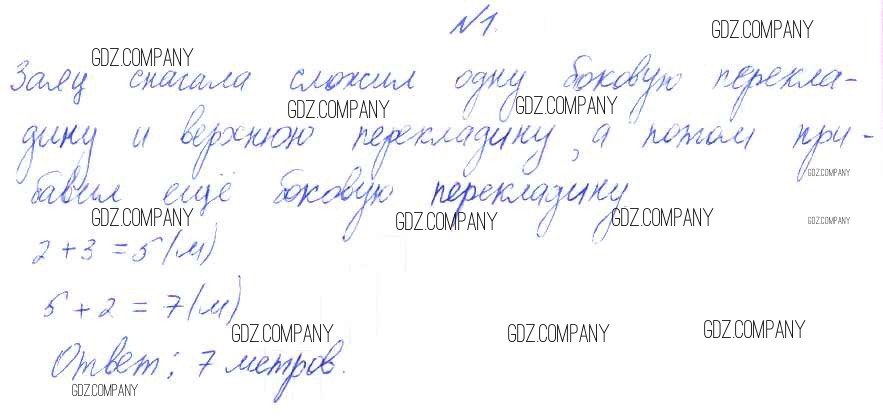 №1.
GDZ.COMPANY
GDZ.COMPANY
Заяц сначала сложил одну боковую перекла-
GDZ.COMPANY GDZ.COMPANY
дину и верхнюю перекладину, а потом при-
GDZ.COMPANY
бавил ещё боковую перекладину
GDZ.COMPANY GDZ.COMPANY GDZ.COMPANY GDZ.COMPANY
2 + 3 = 5 (м)
5 + 2 = 7 (м)
GDZ.COMPANY GDZ.COMPANY GDZ.COMPANY
Ответ: 7 метров.
GDZ.COMPANY